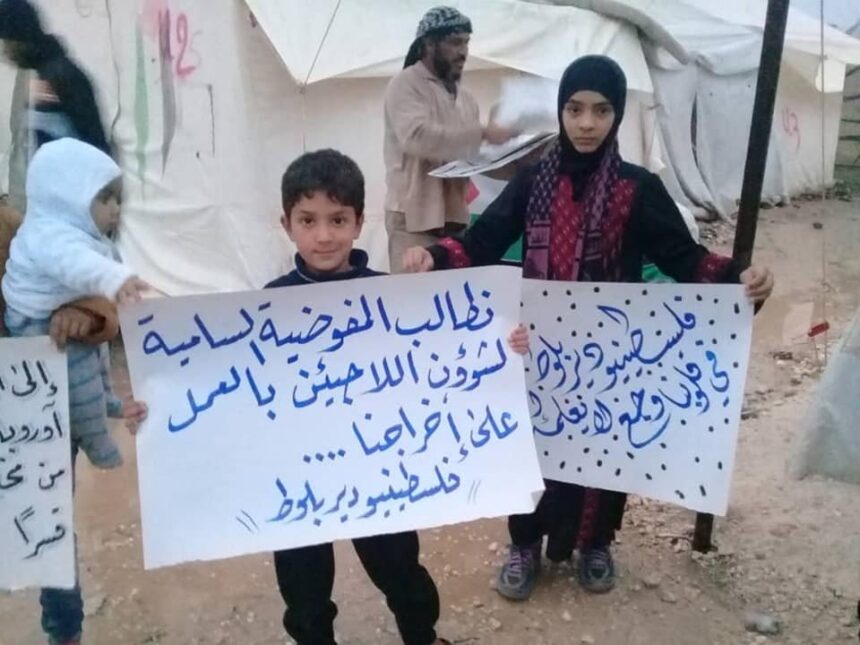 نطالب المفوضية السامية
لشؤون اللاجئين بالعمل
على إخراجنا ....
"فلسطينيو دير بلوط"
فلسطينيو دير بلوط
في قلوبنا وجع لا يعلمه
إلى
أوروبا
من
قسراً